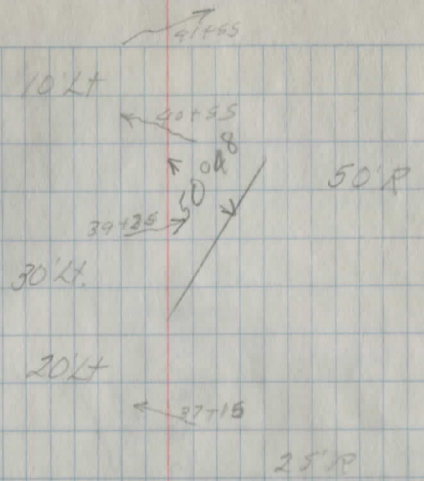 41+65
10'Lt
40+55
50'R
39+25
30'Lt.
20'Lt
37+15
25'R